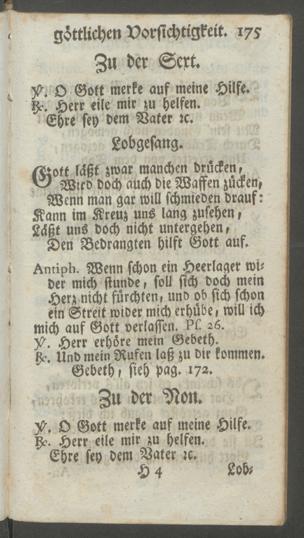 göttlichen Vorsichtigkeit. 175
Zu der Sext.
℣. O Gott merke auf meine Hilfe.
℟. Herr eile mir zu helfen.
Ehre sey dem Vater ꝛc.
Lobgesang.
Gott läßt zwar manchen drücken,
Wird doch auch die Waffen zücken,
Wenn man gar will schmieden drauf:
Kann im Kreuz uns lang zusehen,
Läßt uns doch nicht untergehen,
Den Bedrangten hilft Gott auf.
Antiph. Wenn schon ein Heerlager wi-
der mich stunde, soll sich doch mein
Herz nicht fürchten, und ob sich schon
ein Streit wider mich erhübe, will ich
mich auf Gott verlassen. Ps. 26.
℣. Herr erhöre mein Gebeth.
℟. Und mein Rufen laß zu dir kommen.
Gebeth, sieh pag. 172.
Zu der Non.
℣. O Gott merke auf meine Hilfe.
℟. Herr eile mir zu helfen.
Ehre sey dem Vater ꝛc.
H 4 Lob-